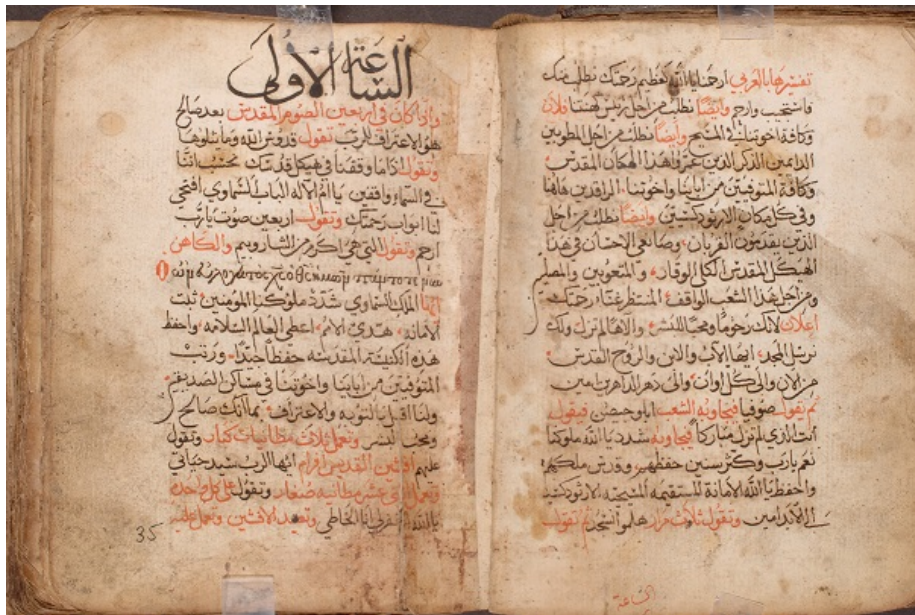 تفسيرها بالعربي ارحمنا يا الله كعظيم رحمتك نطلب منك
فاستجيب وارحم وايضًا نطلب من اجل ريس كهنتنا فلان
وكافة اخوتنا في المسيح وايضًا نطلب من اجل المطوبين
الدايمين الذكر الذين عمروا هذا المكان المقدس
وكافة المتوفيين من اباينا واخوتنا الراقدين هاهنا
وفي كل مكان الارثودكسيين وايضًا نطلب من اجل
الذين يقدمون القربان وصانعي الاحسان في هذا
الهيكل المقدس الكلي الوقار والمتعوبين والمرتلين
ومن اجل هذا الشعب الواقف المنتظر غناء رحمتك
اعلان لانك رحومًا ومحبًا للبشر والاهًا لم تزل ولك
نرسل المجد ايها الاب والابن والروح القدس
من الان والى كل اوان والى دهر الداهرين امين
ثم تقول صوفيا فيجاوبه الشعب فيقول
انت الذي لم تزل مباركًا فيجاوبه شدد يا الله ملوكنا
نعم يا رب وكثر سنين حفظهم
واحفظ يا الله الامانة المستقيمه المسيحيه الارثودكسيه
الى الابد امين وتقول ثلاث مرار هلموا نسجد ثم تقول
الساعة
الساعة الاولى
واذا كان في اربعين الصوم المقدس بعد صالح
هو الاعتراف للرب تقول قدوس الله وما يتلوها
وتقول اذا ما وقفنا في هيكل قدسك نحتسب اننا
في السماء واقفين يا ام الاله الباب السماوي افتحي
لنا ابواب رحمتك وتقول اربعين صوت يا رب
ارحم وتقول التي هي اكرم من الشاروبيم والكاهن
ايها الملك السماوي شدد ملوكنا المومنين ثبت
الامانه هدي الامم اعطي العالم السلامه واحفظ
هذه الكنيسه المقدسه حفظًا جيدًا ورتب
المتوفيين من اباينا واخوتنا في مساكن الصديقين
ولنا اقبل بالتوبه والاعتراف بما انك صالح
ومحب للبشر وتعمل ثلاث مطانيات كبار وتقول
عليهم افشين القديس افرام ايها الرب سيد حياتي
وتعمل اثني عشر مطانيه صغار وتقول على كل واحده
يا الله اغفر لي انا الخاطي وتعيد الافشين وتعمل
35